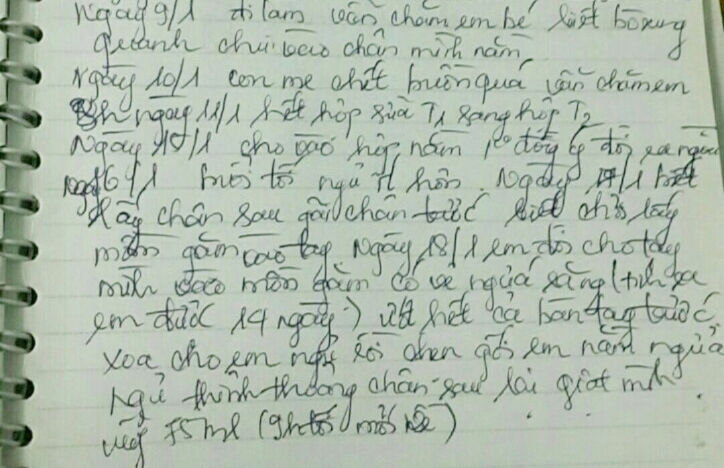 Ngày 9/1 đi làm vẫn chăm em bé biết bò xung
quanh chui vào chăn mình nằm
Ngày 10/1 con mẹ chết buồn quá vẫn chăm em
ngày 11/1 hết hộp sữa T1 sang hộp T2
Ngày 15/1 cho vào hộp nằm đòi ra ngoài
Ngày 16/1 buổi tối ngủ ít hơn. Ngày 17/1 biết
lấy chân sau gãi chân trước biết chó lấy
mồm gặm vào tay. Ngày 18/1 em đòi cho tay
mình vào mồm gặm có vẻ ngứa răng (tính ra
em được 14 ngày) hết cả bàn tay trước
xoa cho em ngủ rồi chèn gối em nằm ngửa
ngủ thỉnh thoảng chân sau lại giật mình
75ml (9h tối mới về)